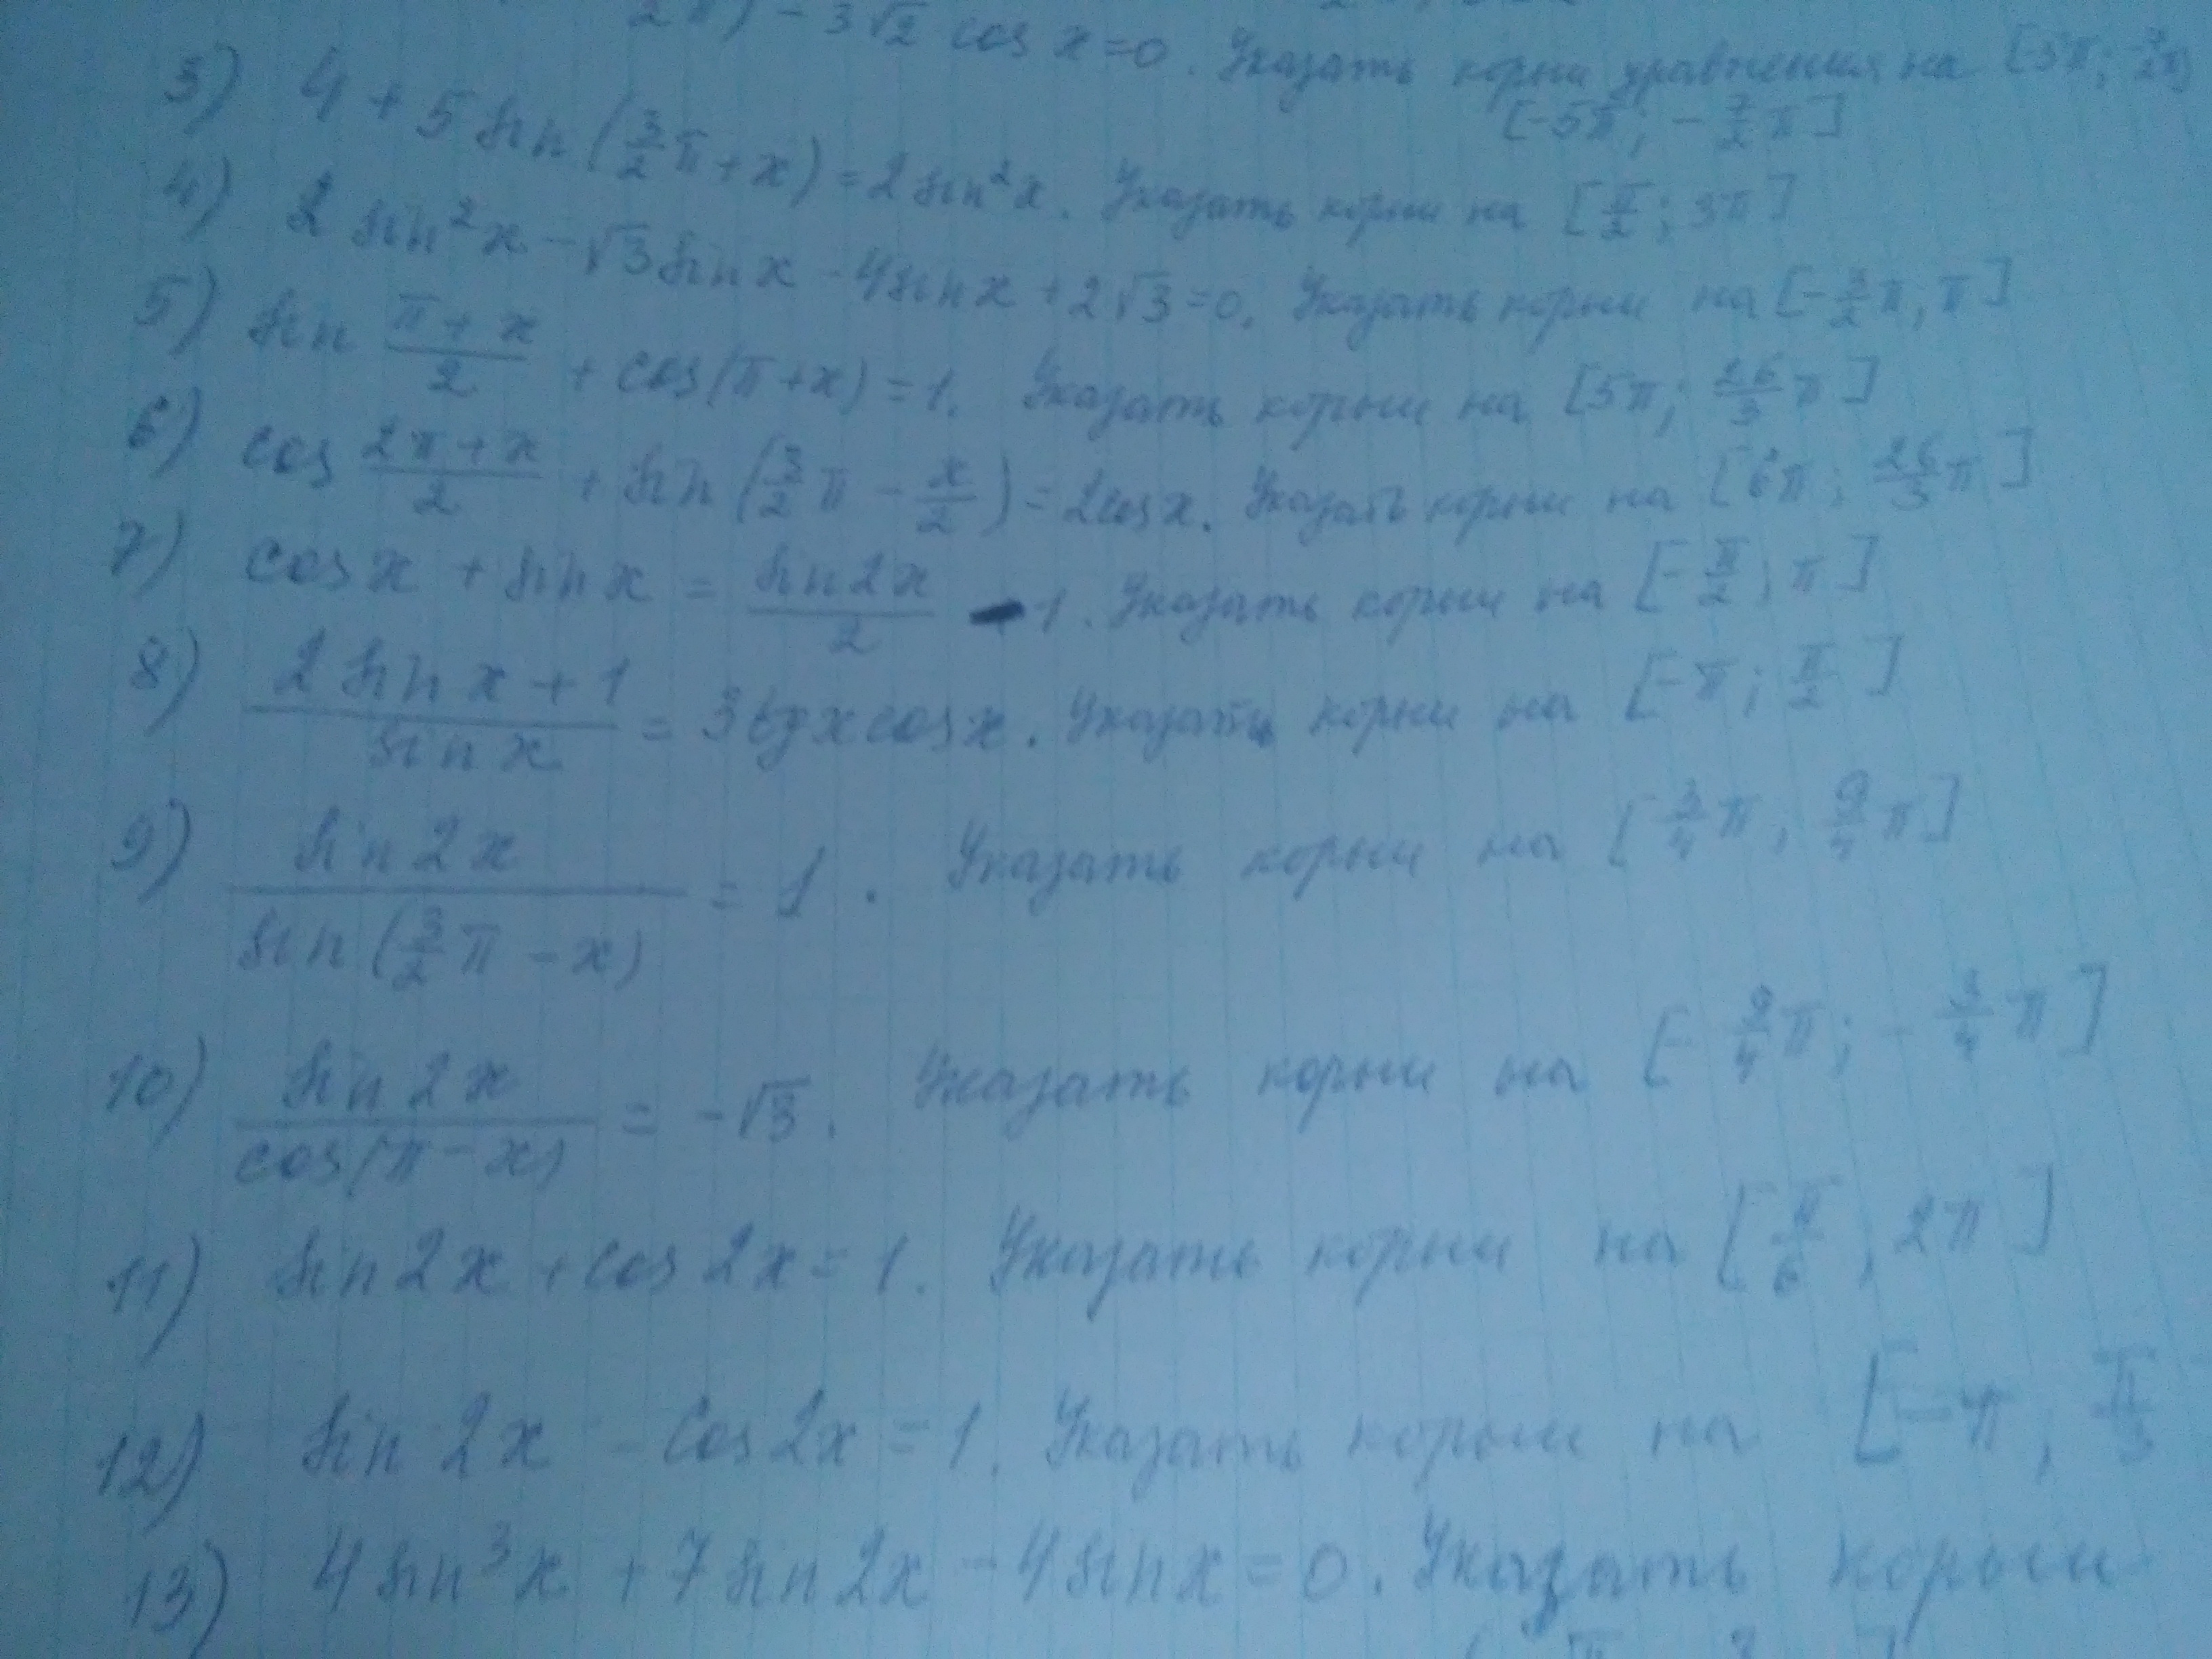 2π) - 3√2 cos x = 0. Указать корни уравнения на
[-5π; -7/2 π]
3) 4 + 5 sin(3/2 π + x) = 2 sin²x. Указать корни на [π/2; 3π]
4) 2 sin²x - √3 sin x - 4 sin x + 2√3 = 0. Указать корни на [-3/2 π; π]
5) sin (π + x)/2 + cos(π + x) = 1. Указать корни на [5π; 26/3 π]
6) cos (2π + x)/2 + sin(3/2 π - x/2) = 2cos x. Указать корни на [6π; 26/3 π]
7) cos x + sin x = sin 2x/2 - 1. Указать корни на [-π/2; π]
8) (2 sin x + 1)/sin x = 3tg x cos x. Указать корни на [-π; π/2]
9) sin 2x/sin(3/2 π - x) = 1. Указать корни на [3/4 π; 9/4 π]
10) sin 2x/cos(π - x) = -√3. Указать корни на [-9/4 π; -3/4 π]
11) sin 2x + cos 2x = 1. Указать корни на [π/6; 2π]
12) sin 2x - cos 2x = 1. Указать корни на [-π; π/3
13) 4 sin³x + 7 sin 2x - 4 sin x = 0. Указать корни